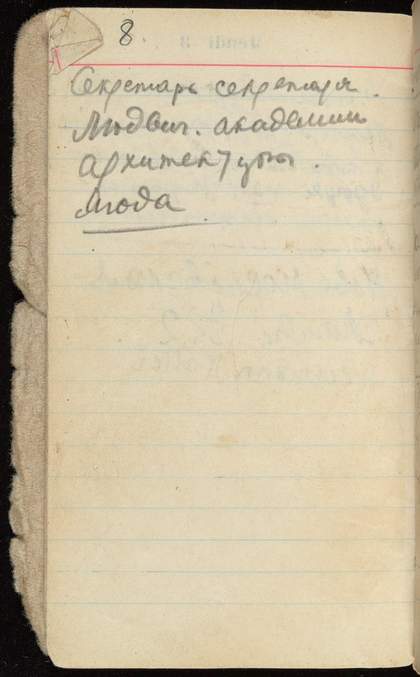 8.
Секретарь секретаря.
Людвиг. академии
архитектуры.
Мода